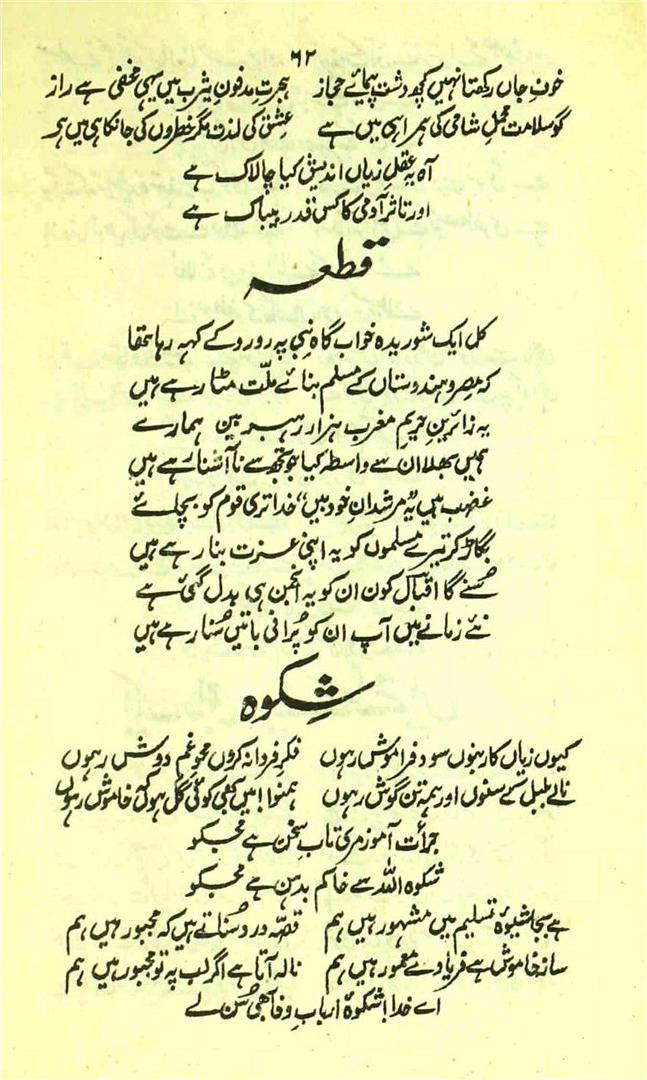 ۶۲
خوفِ جاں رکھتا نہیں کچھ دشت پیمائے حجاز ہجرتِ مدفونِ یثرب میں یہی مخفی ہے راز
گو سلامت محملِ شامی کی ہمراہی میں ہے عشق کی لذت مگر خطروں کی جانکاہی میں ہے
آہ یہ عقلِ زیاں اندیش کیا چالاک ہے
اور تاثر آدمی کا کس قدر بیباک ہے
قطعہ
کل ایک شوریدہ خواب گاہِ نبی پہ رو رو کے کہہ رہا تھا
کہ مصر و ہندوستاں کے مسلم بنائے ملّت مٹا رہے ہیں
یہ زائرینِ حریمِ مغرب ہزار رہبر بنیں ہمارے
ہمیں بھلا ان سے واسطہ کیا جو تجھ سے نا آشنا رہے ہیں
غضب ہیں یہ "مرشدانِ خود بیں" خدا تری قوم کو بچائے
بگاڑ کر تیرے مسلموں کو یہ اپنی عزت بنا رہے ہیں
سُنے گا اقبال کون ان کو یہ انجمن ہی بدل گئی ہے
نئے زمانے میں آپ ان کو پُرانی باتیں سُنا رہے ہیں
شکوہ
کیوں زیاں کار بنوں سود فراموش رہوں فکرِ فردا نہ کروں محوِ غمِ دوش رہوں
نالے بلبل کے سنوں اور ہمہ تن گوش رہوں ہمنوا! میں بھی کوئی گل ہوں کہ خاموش رہوں
جرأت آموز مری تابِ سخن ہے مجکو
شکوہ اللہ سے خاکم بدہن ہے مجکو
ہے بجا شیوۂ تسلیم میں مشہور ہیں ہم قصّۂ درد سُناتے ہیں کہ مجبور ہیں ہم
سازِ خاموش ہے فریاد سے معمور ہیں ہم نالہ آتا ہے اگر لب پہ تو مجبور ہیں ہم
اے خدا! شکوۂ اربابِ وفا بھی سُن لے